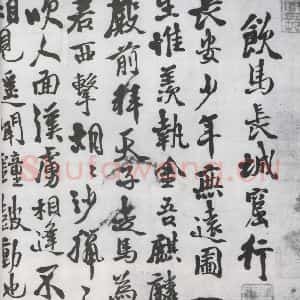 飲馬長城窟行
長安少年無遠圖一
生惟羨執金吾麒麟
殿前拜天子走馬為
君西擊胡〻沙獵〻
吹人面漢虜相逢不
相見遙聞鼓動地